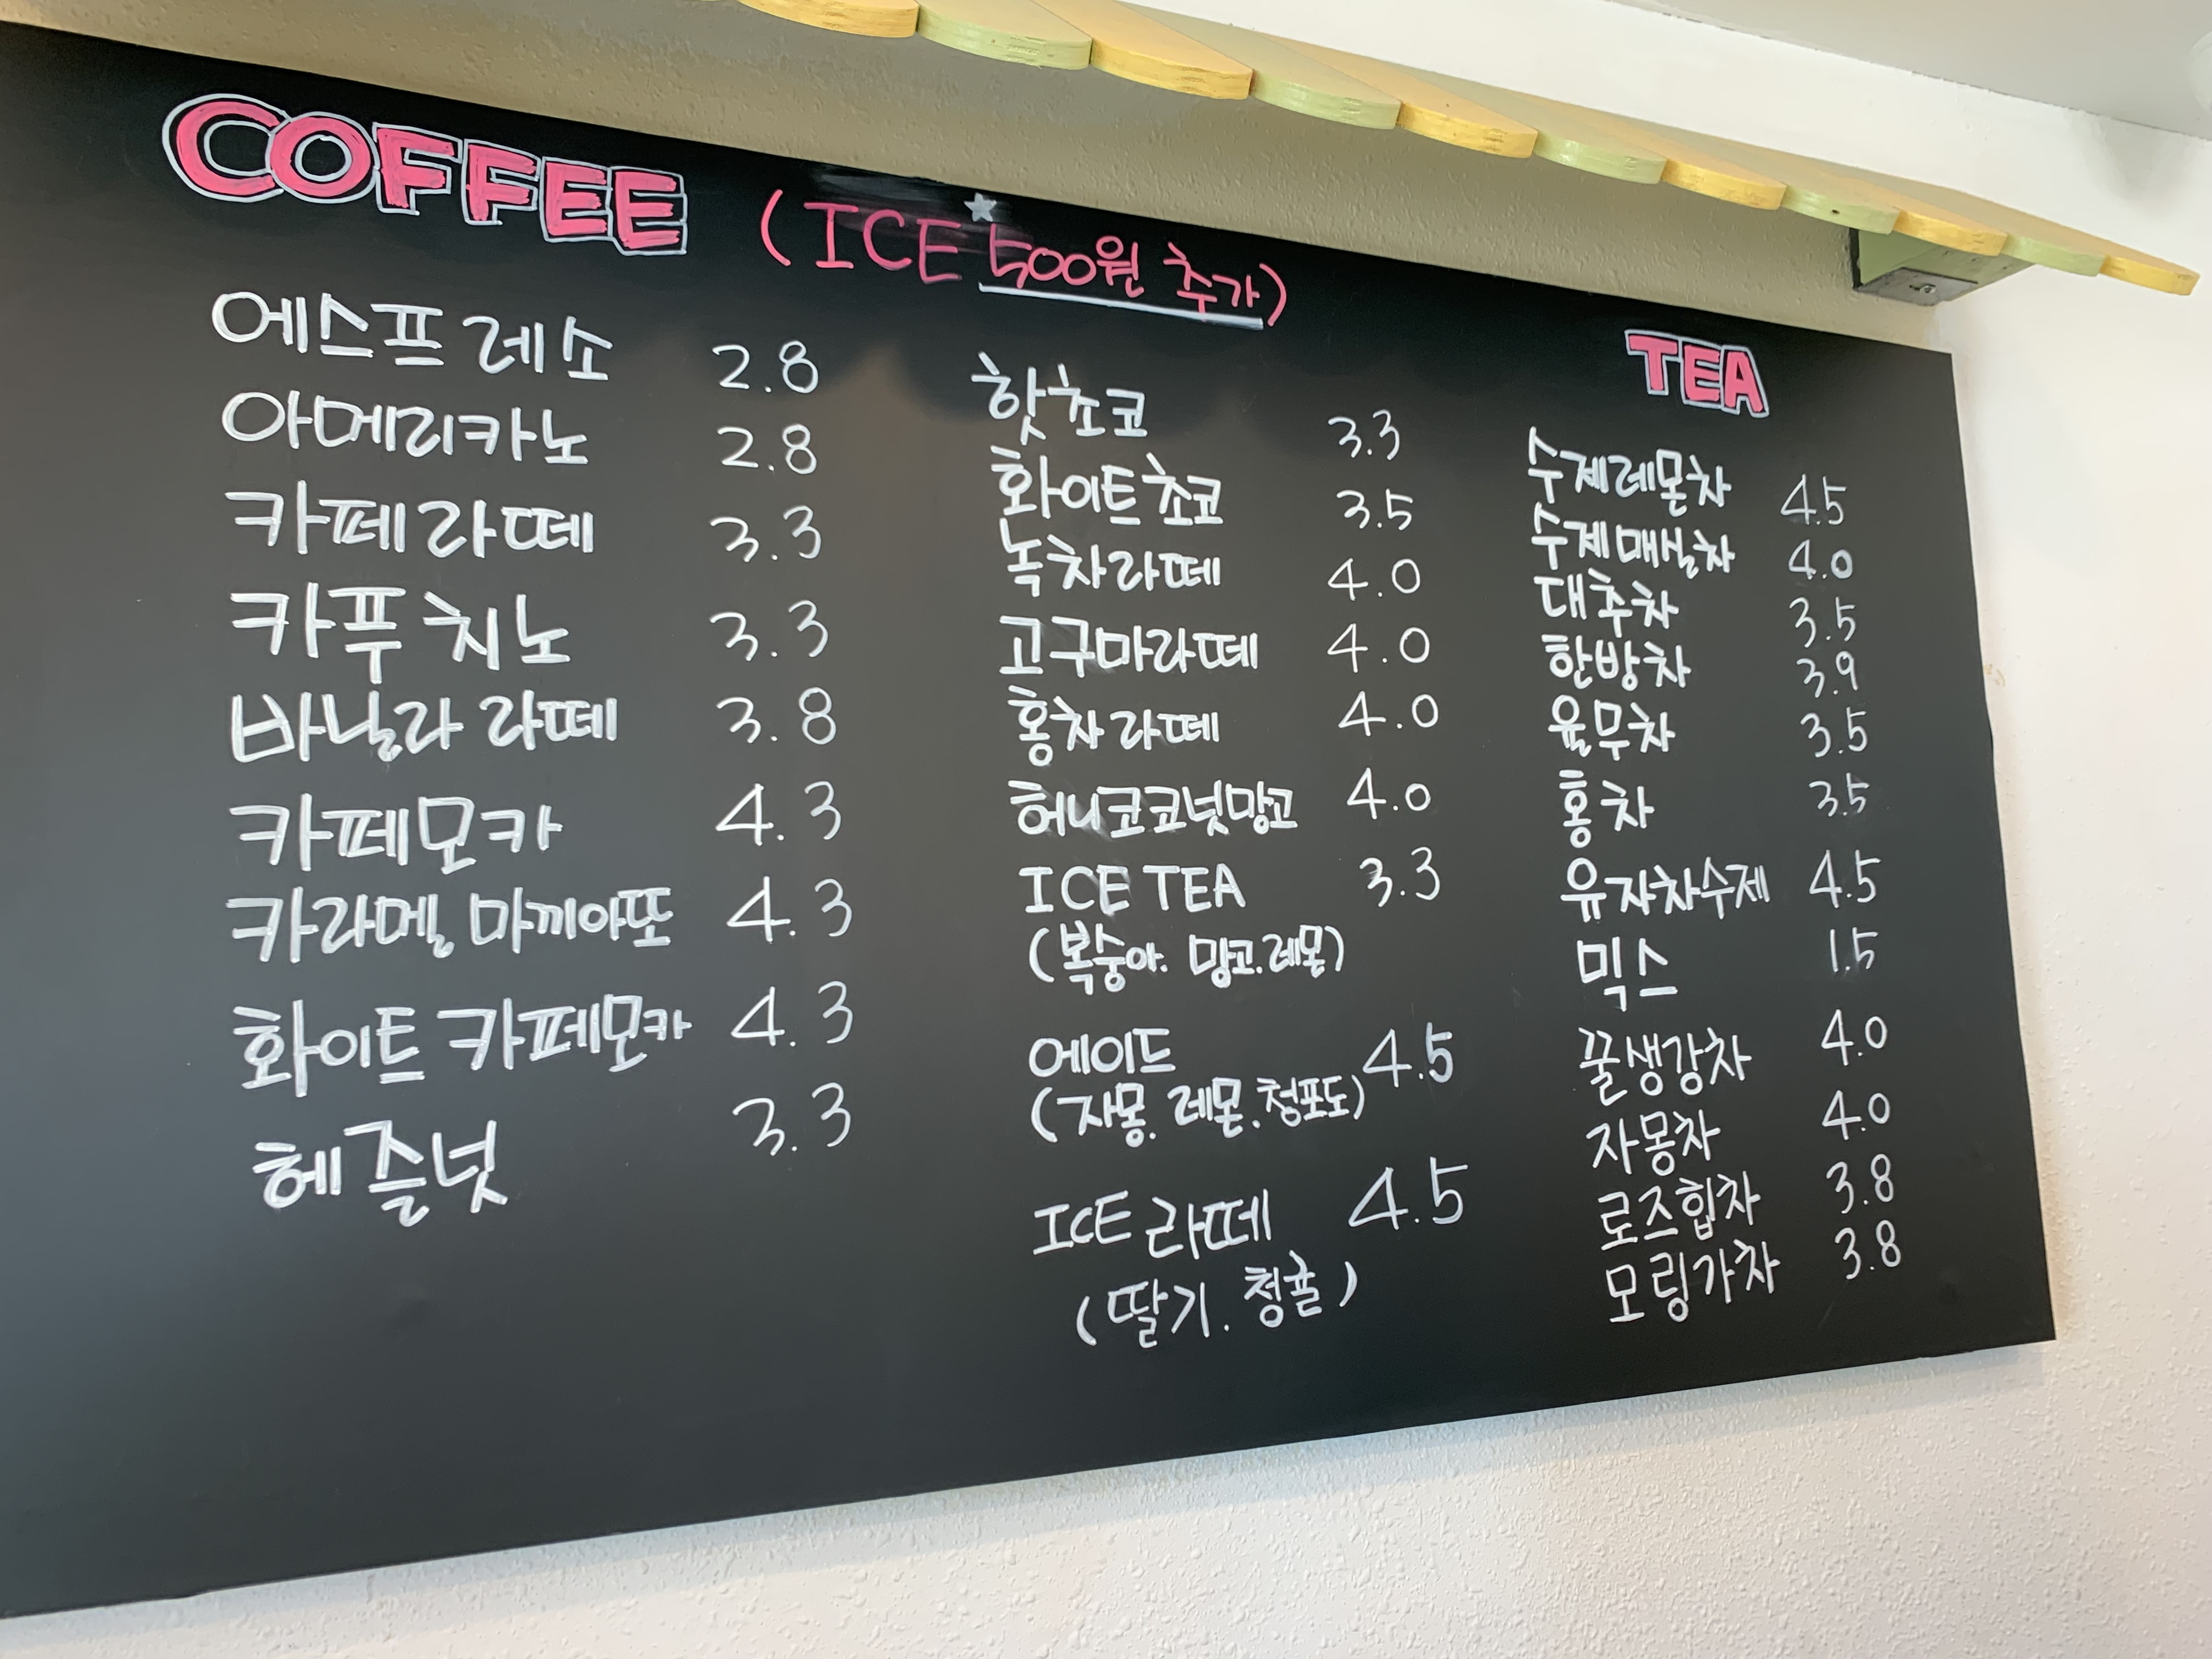 COFFEE (ICE 500원 추가)
에스프레소 2.8
아메리카노 2.8
카페라떼 3.3
카푸치노 3.3
바닐라 라떼 3.8
카페모카 4.3
카라멜 마끼아또 4.3
화이트 카페모카 4.3
헤즐넛 3.3
핫초코 3.3
화이트초코 3.5
녹차라떼 4.0
고구마라떼 4.0
홍차라떼 4.0
허니코코넛망고 4.0
ICE TEA 3.3
(복숭아. 망고.레몬)
에이드 4.5
(자몽. 레몬.청포도)
ICE 라떼 4.5
(딸기. 청귤)
TEA
수제레몬차 4.5
수제매실차 4.0
대추차 3.5
한방차 3.9
율무차 3.5
홍차 3.5
유자차수제 4.5
믹스 1.5
꿀생강차 4.0
자몽차 4.0
로즈힙차 3.8
모링가차 3.8